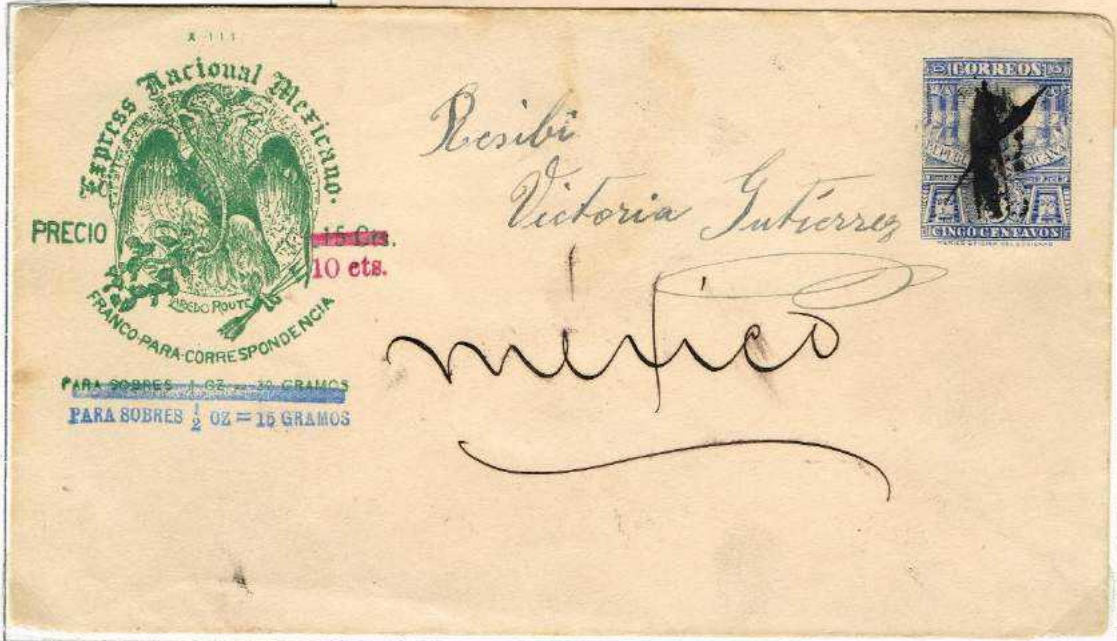 A 111
Express Nacional Mexicano.
PRECIO 15 Cts.
10 cts.
LAREDO ROUTE
FRANCO PARA CORRESPONDENCIA
PARA SOBRES 1 OZ = 30 GRAMOS
PARA SOBRES 1/2 OZ = 15 GRAMOS
Resibi
Victoria Gutierrez
mexico
CORREOS
CINCO CENTAVOS